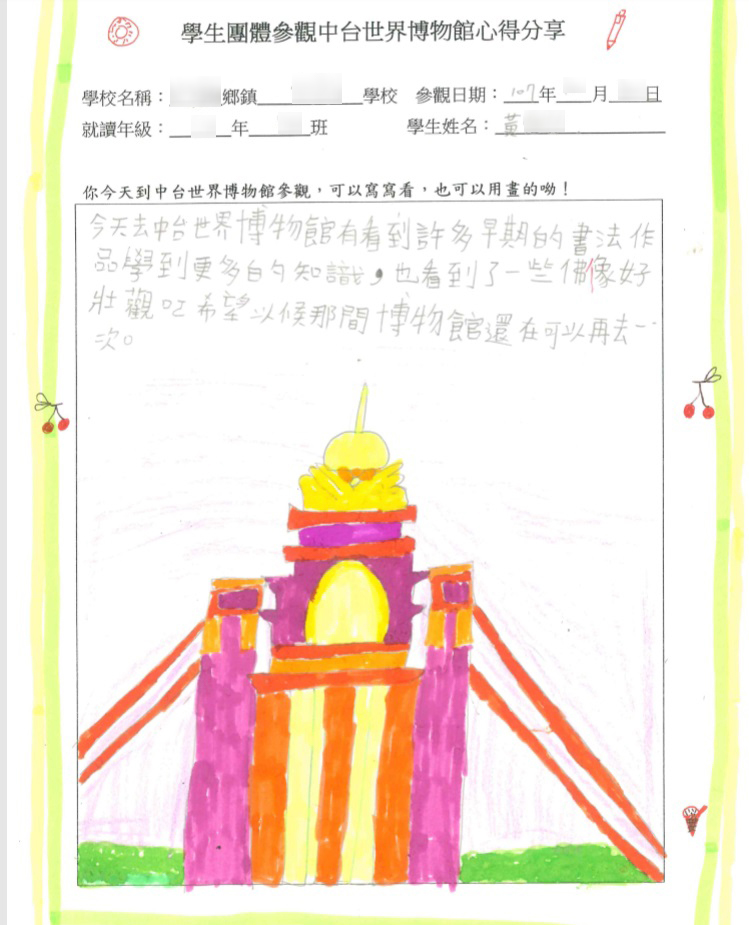 學生團體參觀中台世界博物館心得分享
學校名稱：鄉鎮學校 參觀日期：107年月日
就讀年級：年班 學生姓名：黃
你今天到中台世界博物館參觀，可以寫寫看，也可以用畫的呦！
今天去中台世界博物館有看到許多早期的書法作
品學到更多的知識，也看到了一些佛像好
壯觀吔希望以候那間博物館還在可以再去一
次。